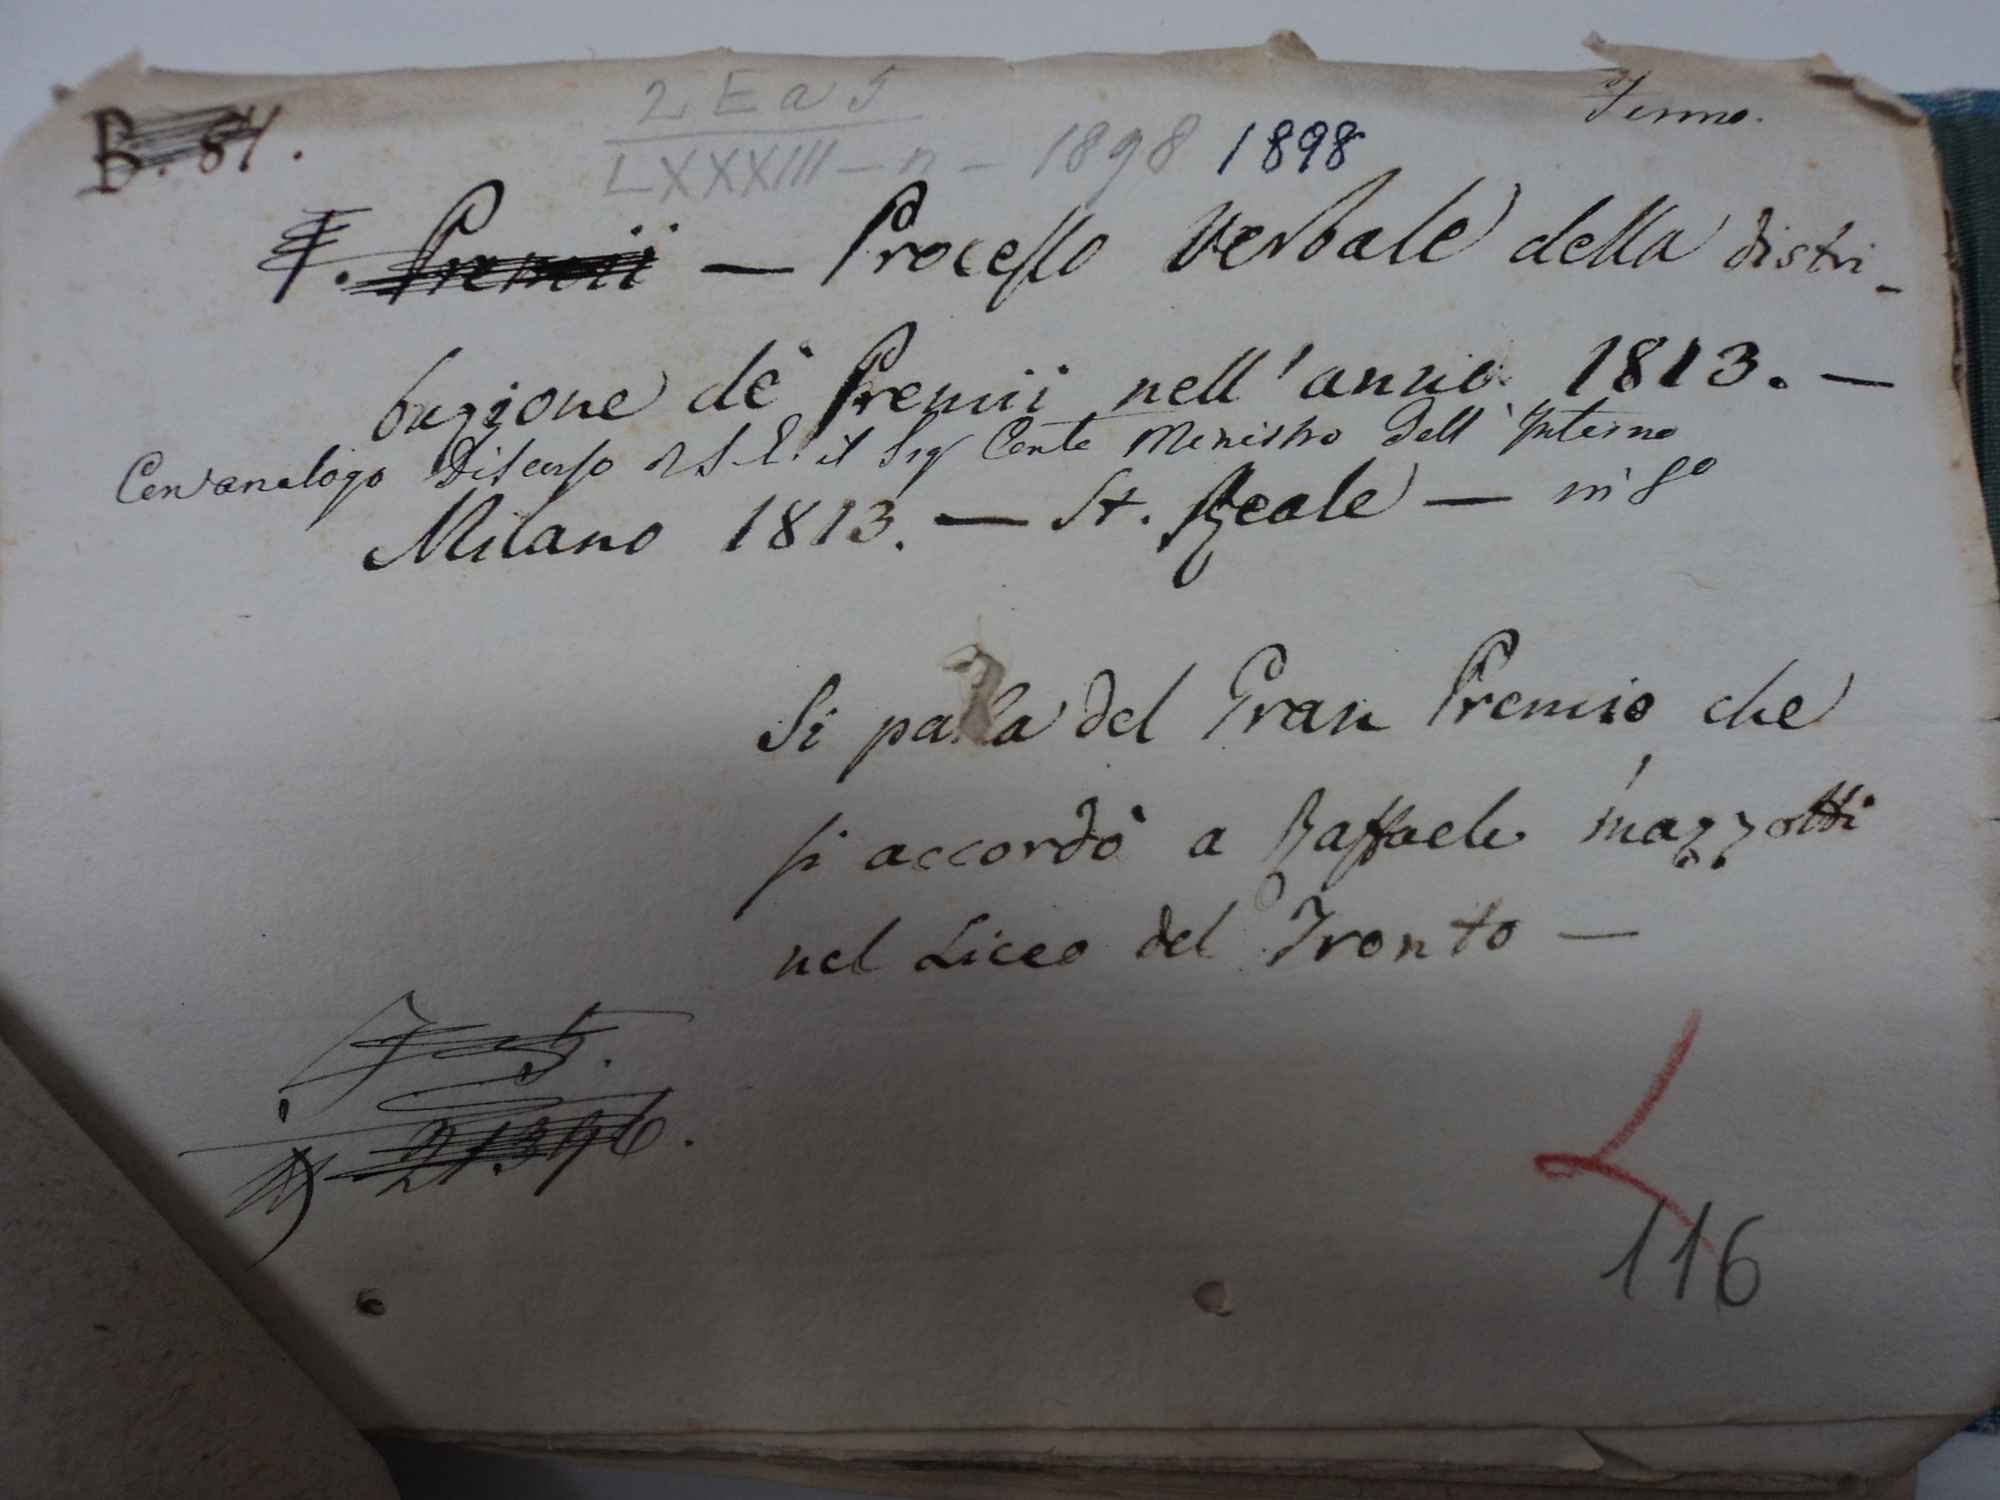 B. 84.
2 E a 5
LXXXIII - n - 1898 1898
Fermo.
Premii — Processo Verbale della distri-
buzione de' Premii nell'anno 1813. —
Con analogo Discorso di S. E. il Sig Conte Ministro dell'Interno
Milano 1813. — St. Reale — in 8º
Si parla del Gran Premio che
si accordò a Raffaele Mazzotti
nel Liceo del Tronto —
116